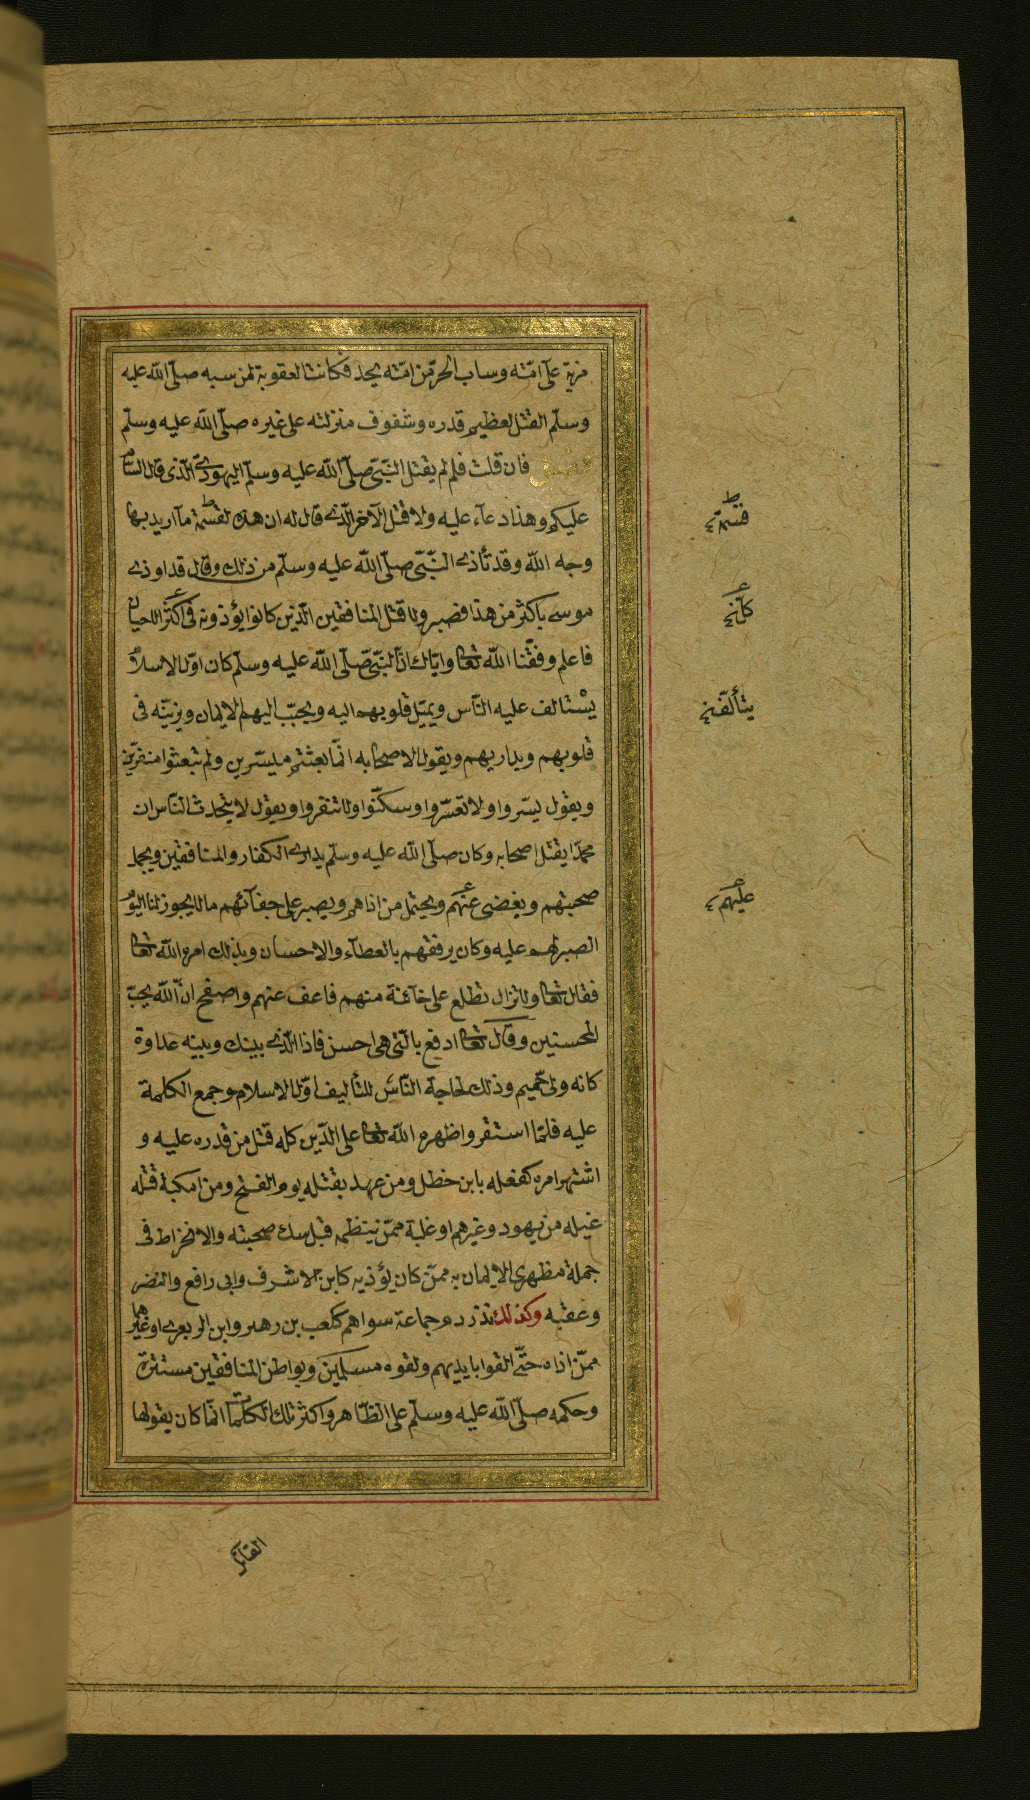 مزية على امّته وساب الحرّ من امّته يحد فكانت العقوبة لمن سبه صلّى الله عليه
وسلّم القتل لعظيم قدره وشفوف منزلته على غيره صلّى الله عليه وسلّم
فصل فان قلت فلم لم يقتل النّبيّ صلّى الله عليه وسلّم اليهوديّ الّذى قال السّام
عليكم وهذا دعآء عليه ولا قتل الآخر الّذى قال له ان هذه لقسمة مآ اريد بها
وجه الله وقد تأذى النّبيّ صلّى الله عليه وسلّم من ذلك وقال قد اوذى
موسى باكثر من هذا فصبر ولا قتل المنافقين الّذين كانوا يؤذونه فى اكثر الاحيان
فاعلم وفقّنا الله تعالى وايّاك انّ النّبيّ صلّى الله عليه وسلّم كان اوّل الاسلام
يستالف عليه النّاس ويميّل قلوبهم اليه ويحبّب اليهم الايمان ويزيّنه فى
قلوبهم ويداريهم ويقول لاصحابه انّما بعثتم ميسّرين ولم تبعثوا منفرّين
ويقول يسّروا ولا تعسّروا وسكّنوا ولا تنفروا ويقول لا يتحدث النّاس ان
محمّدا يقتل اصحابه وكان صلّى الله عليه وسلّم يدارى الكفار والمنافقين ويجمل
صحبتهم ويغضى عنهم ويحتمل من اذاهم ويصبر على جفآئهم ما لا يجوز لنا اليوم
الصبر لهم عليه وكان يرفقهم بالعطآء والاحسان وبذلك امره الله تعالى
فقال تعالى ولا تزال تطلع على خآئنة منهم فاعف عنهم واصفح انّ الله يحبّ
المحسنين وقال تعالى ادفع بالتى هى احسن فاذا الّذى بينك وبينه عداوة
كانه ولىّ حميم وذلك لحاجة النّاس للتأليف اوّل الاسلام وجمع الكلمة
عليه فلمّا استقر واظهره الله تعالى على الدّين كله قتل من قدره عليه و
اشتهر امره كفعله بابن خطل ومن عهد بقتله يوم الفتح ومن امكبة قتله
غيلة من يهود وغيرهم او غلبة ممّن ينظمه قبل سك صحبته والانخراط فى
جملة مظهرى الايمان به ممّن كان يؤذيه كابن الاشرف وابى رافع والنضر
وعقبه وكذلك نذر دم جماعة سواهم ككعب بن زهير وابن الزبعرى وغيرهما
ممّن اذاه حتّى القوا بايديهم ولقوه مسلمين وبواطن المنافقين مستترة
وحكمه صلّى الله عليه وسلّم على الظّاهر واكثر تلك الكلمات انّما كان يقولها
القآئل
قسمة
كلّ
يتألّف
عليهم